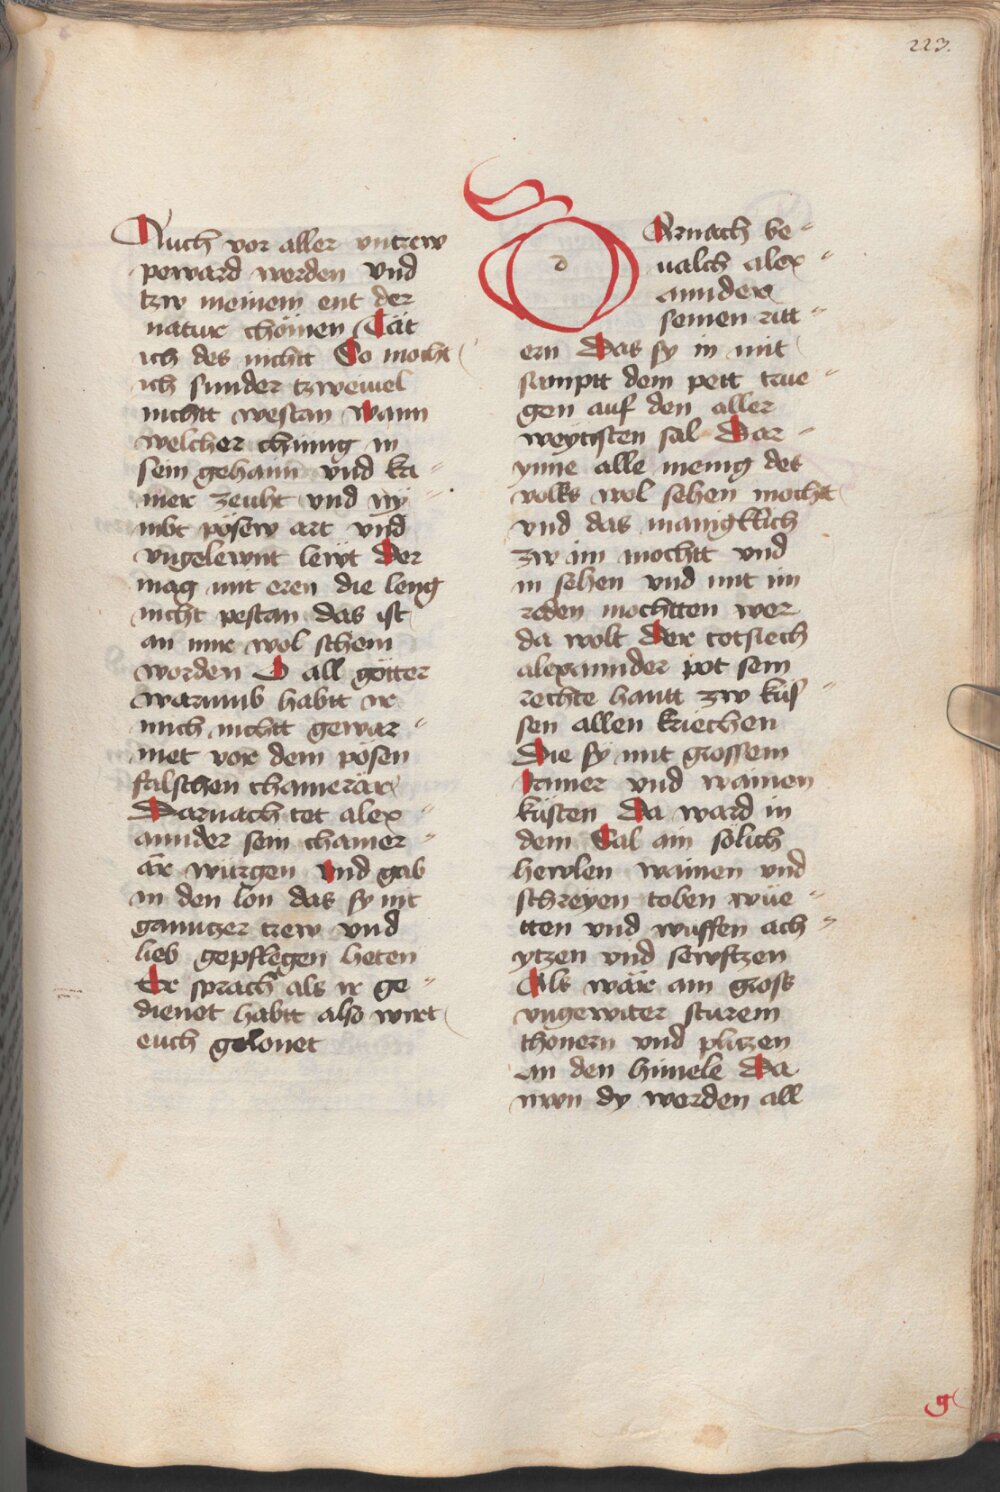 223.
Auch vor aller vntrew
peward werden vnd
tzw meinem ent der
natur chömen Tät
ich des nichtt So mocht
ich sunder tzweiuel
nichtt westan wann
welcher chunig in
sein gehaim vnd ka
mer zeucht vnd ny
mbt pösew art vnd
vngelewnt lewt Der
mag mit eren die leng
nicht pestan das ist
an mir wol schein
worden O all götter
warumb habtt ir
mich nichtt gewar
net vor dem pösen
falschen chamerär
Darnach tet alex
annder sein chamer
är würgen vnd gab
in den lon das sy mit
ganntzer trew vnd
lieb gepflegen heten
Er sprach als ir ge
dienet habtt also wirt
euch gelonet
DArnach be
ualch alex
annder
seinen ritt
ern Das sy in mit
samptt dem pett true
gen auf den aller
weytisten sal Dar
ynne alle menig des
volks wol sehen mocht
vnd das manigklich
zw im mochtt vnd
in sehen vnd mit im
reden mochtten wer
da wolt Der totsiech
alexannder pot sein
rechte hantt zw küs
sen allen kriechen
Die sy mit grossem
iamer vnd wainen
küsten Da ward in
dem Sal ain sölich
hewlen wainen vnd
schreyen toben wüe
tten vnd waffen ach
ytzen vnd sewftzen
Als wär ain gross
vngewiter sturem
thonern vnd plitzen
an den himele Da
nwn dy worden all
g